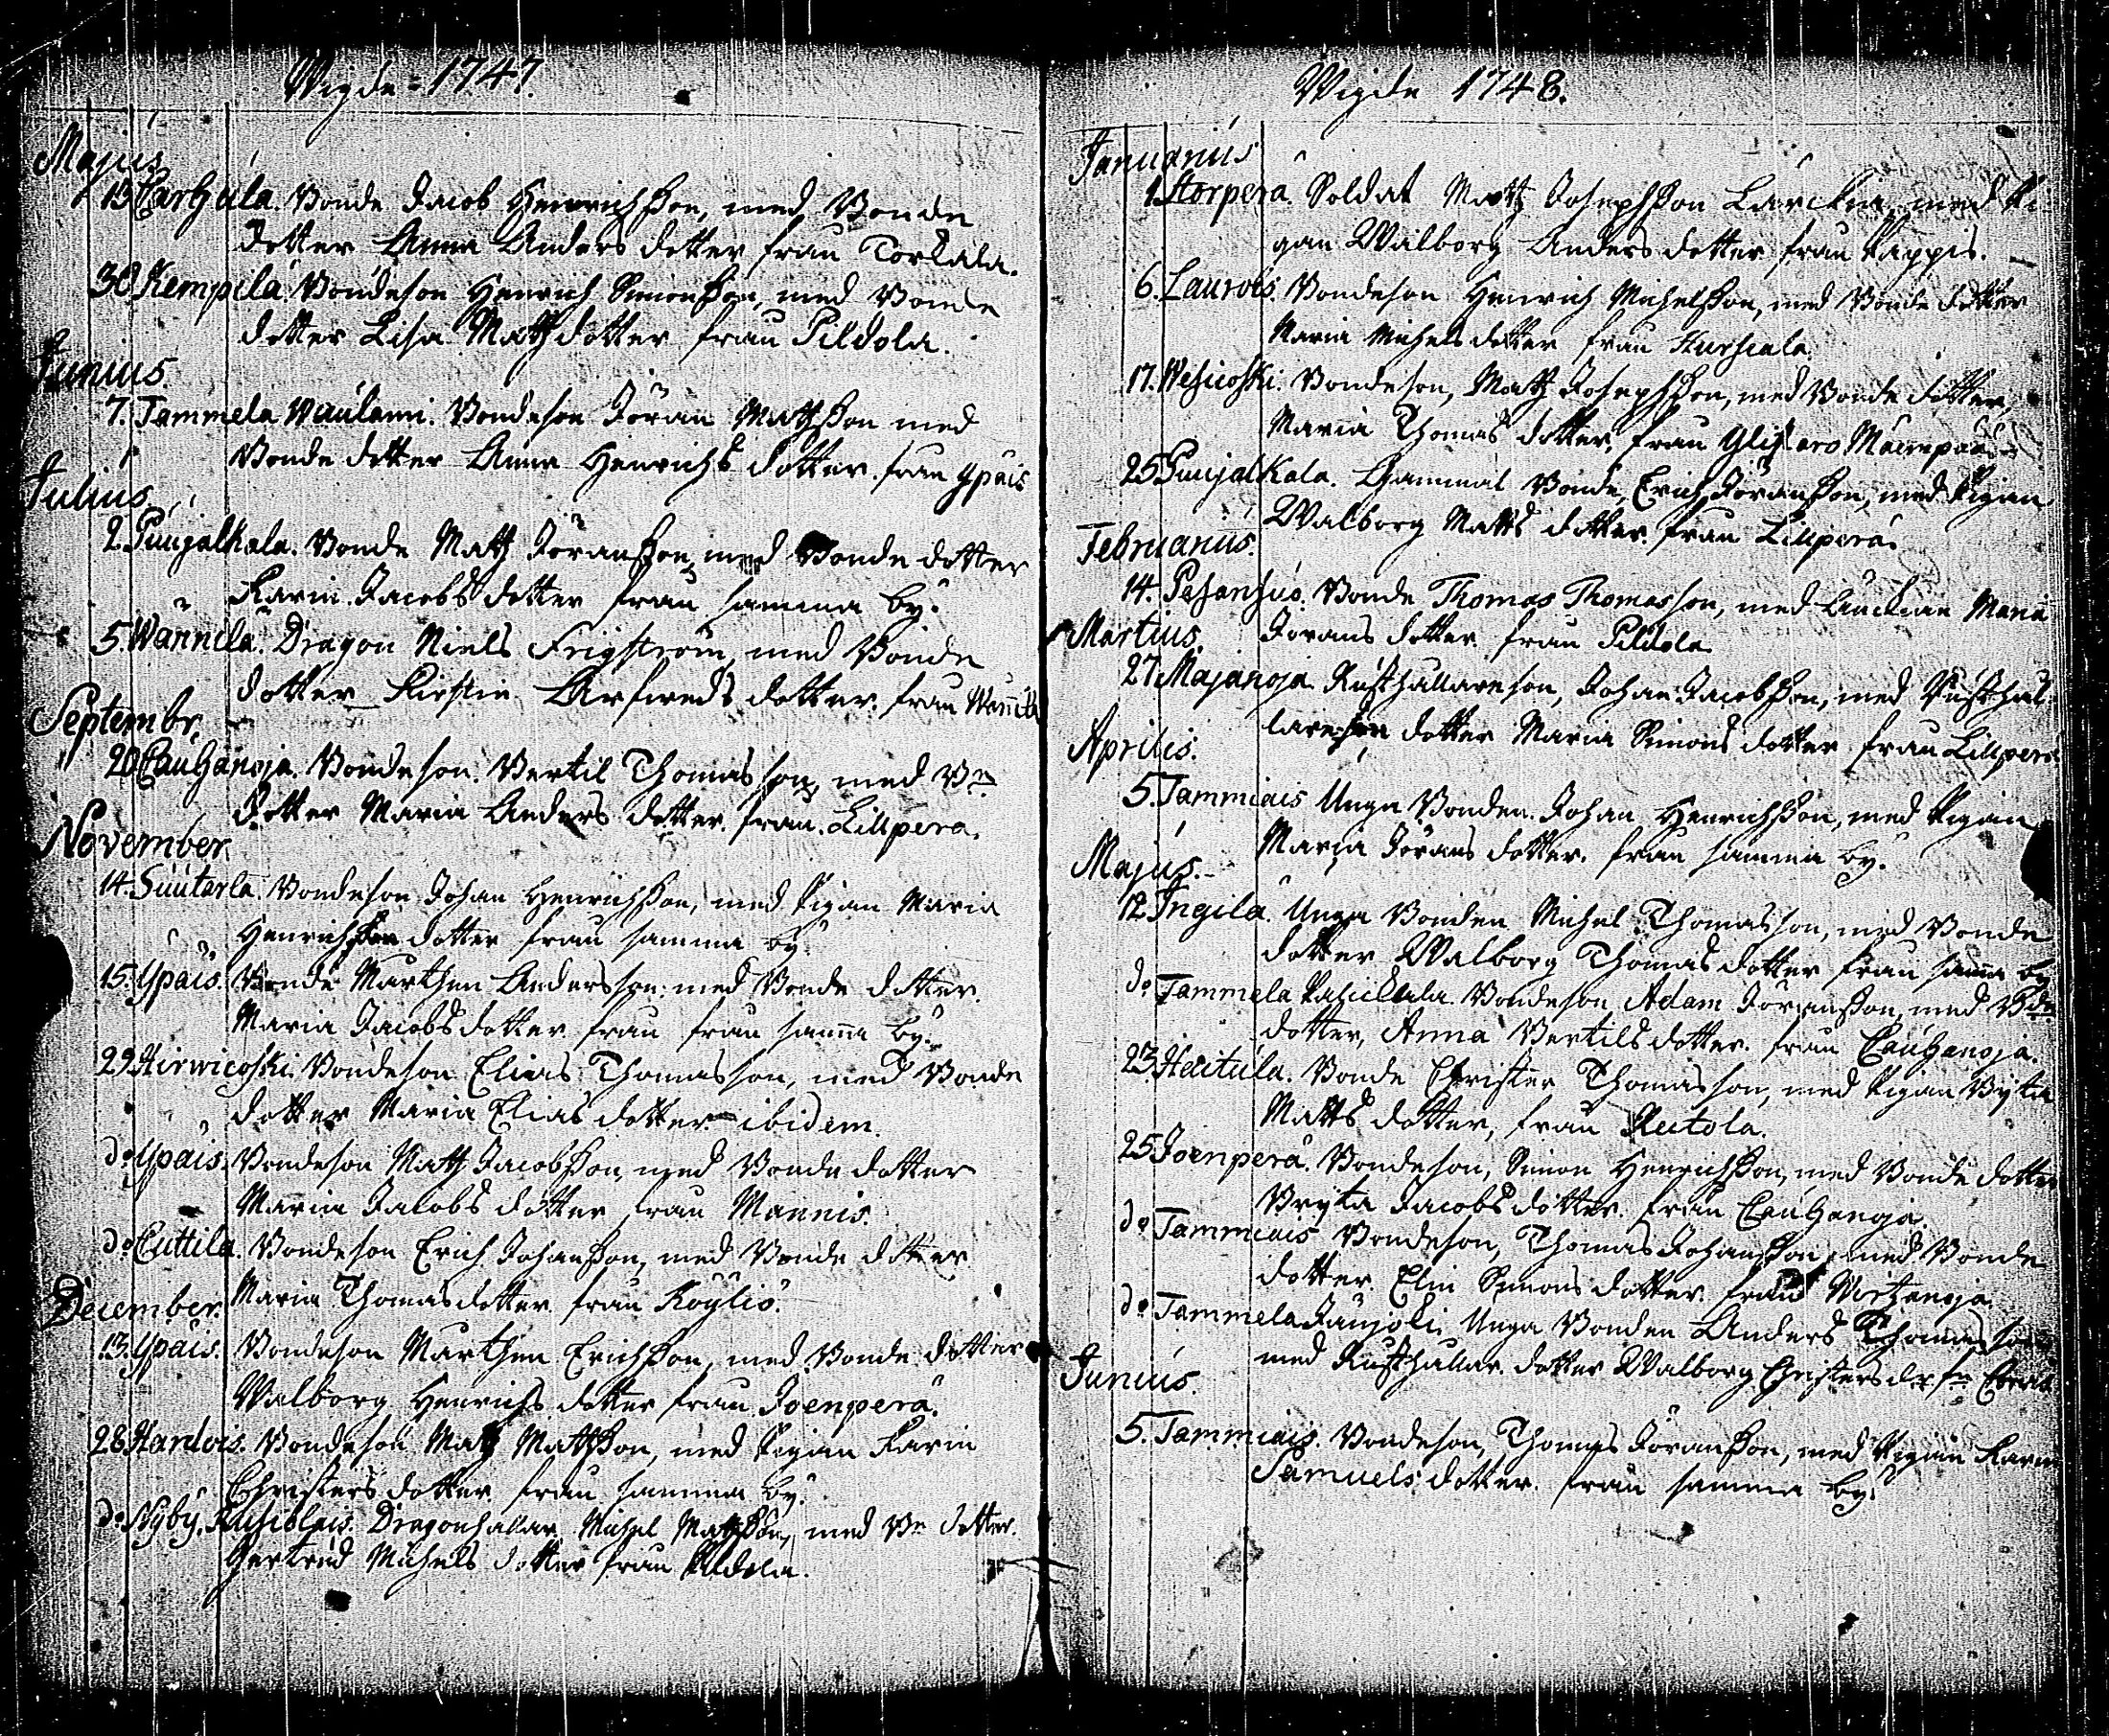 Wigde 1747.
Majus
13. Carhula. Bonde Jacob Henrichsson, med Bonde
dotter Anna Anders dotter från Torkala.
30. Kempilä. Bondeson Henrich Simonsson, med Bonde
dotter Lisa Matts dotter från Pildola.
Junius
7. Tammela Waulami. Bondeson Jöran Mattsson med
Bonde dotter Anna Henrichs dotter från Ypäis
Julius
2. Puujalkala. Bonde Matts Jöransson, med Bonde dotter
Karin Jacobs dotter från samma by.
5. Wannila. Dragon Niels Frigström, med Bonde
dotter Kirstin Arfweds dotter från Wannila
Septembr.
20. Cauhanoja. Bondeson Bertil Thomasson, med Bde
dotter Maria Anders dotter från Lillperä.
November
14. Suutarla. Bondeson Johan Henrichsson, med Pigan Maria
Henrichs dotter från samma by.
15. Ypäis. Bonde Marthen Andersson med Bonde dotter
Maria Jacobs dotter från från samma by.
29. Hirwicoski. Bondeson Elias Thomasson, med Bonde
dotter Maria Elias dotter ibidem.
do Ypäis. Bondeson Matts Jacobsson, med Bonde dotter
Maria Jacobs dotter från Mannis.
do Cuttila. Bondeson Erich Johansson, med Bonde dotter
Maria Thomas dotter från Köyliö.
December.
13. Ypäis. Bondeson Marthen Erichsson, med Bonde dotter
Walborg Henrichs dotter från Joenperä.
28. Hardois. Bondeson Matts Mattsson, med Pigan Karin
Christers dotter från samma by.
do Nyby. Dragonhallar Michel Mattsson, med Bde dotter
Gertrud Michels dotter från
Wigde 1748.
Januarius
1. Storperä. Soldat Matts Josephsson Larckia, med Pi-
gan Walborg Anders dotter från Pappis.
6. Laurois. Bondeson Henrich Michelsson, med Bonde dotter
Maria Michels dotter från Hurskala.
17. Wesicoski. Bondeson, Matts Josephsson, med Bonde dotter,
Maria Thomas dotter, från
25. Puujalkala. Gammal Bonde, Erich Jöransson, med Pigan
Walborg Matts dotter från Lillperä.
Februarius.
14. Pesansuo. Bonde Thomas Thomasson, med Änckian Maria
Jörans dotter från Pildola
Martius.
27. Majanoja Rusthållareson, Johan Jacobsson, med Rusthål-
lare dotter Maria Simons dotter från Lillperä
Aprilis.
5. Tammiais Unga Bonden Johan Henrichsson, med Pigan
Maria Jörans dotter från samma by.
Majus.
12. Ingilä. Unga Bonden Michel Thomasson, med Bonde
dotter Walborg Thomas dotter från samma by
do Tammela Bondeson Adam Jöransson, med Bde
dotter, Anna Bertils dotter från Cauhanoja.
23. Heitula. Bonde Christer Thomasson, med Pigan Bryta
Matts dotter, från Rutola.
25. Joenperä. Bondeson, Simon Henrichsson, med Bonde dotter
Bryta Jacobs dotter från Cauhanoja.
do Tammiais Bondeson, Thomas Johansson, med Bonde
dotter Elin Simons dotter från Wirtzanoja
do Tammela Jaujoki. Unga Bonden Anders Thomasson
med Rusthållar dotter Walborg Christers dr fr
Junius.
5. Tammiais. Bondeson, Thomas Jöransson, med Pigan Karin
Samuels dotter från samma by.